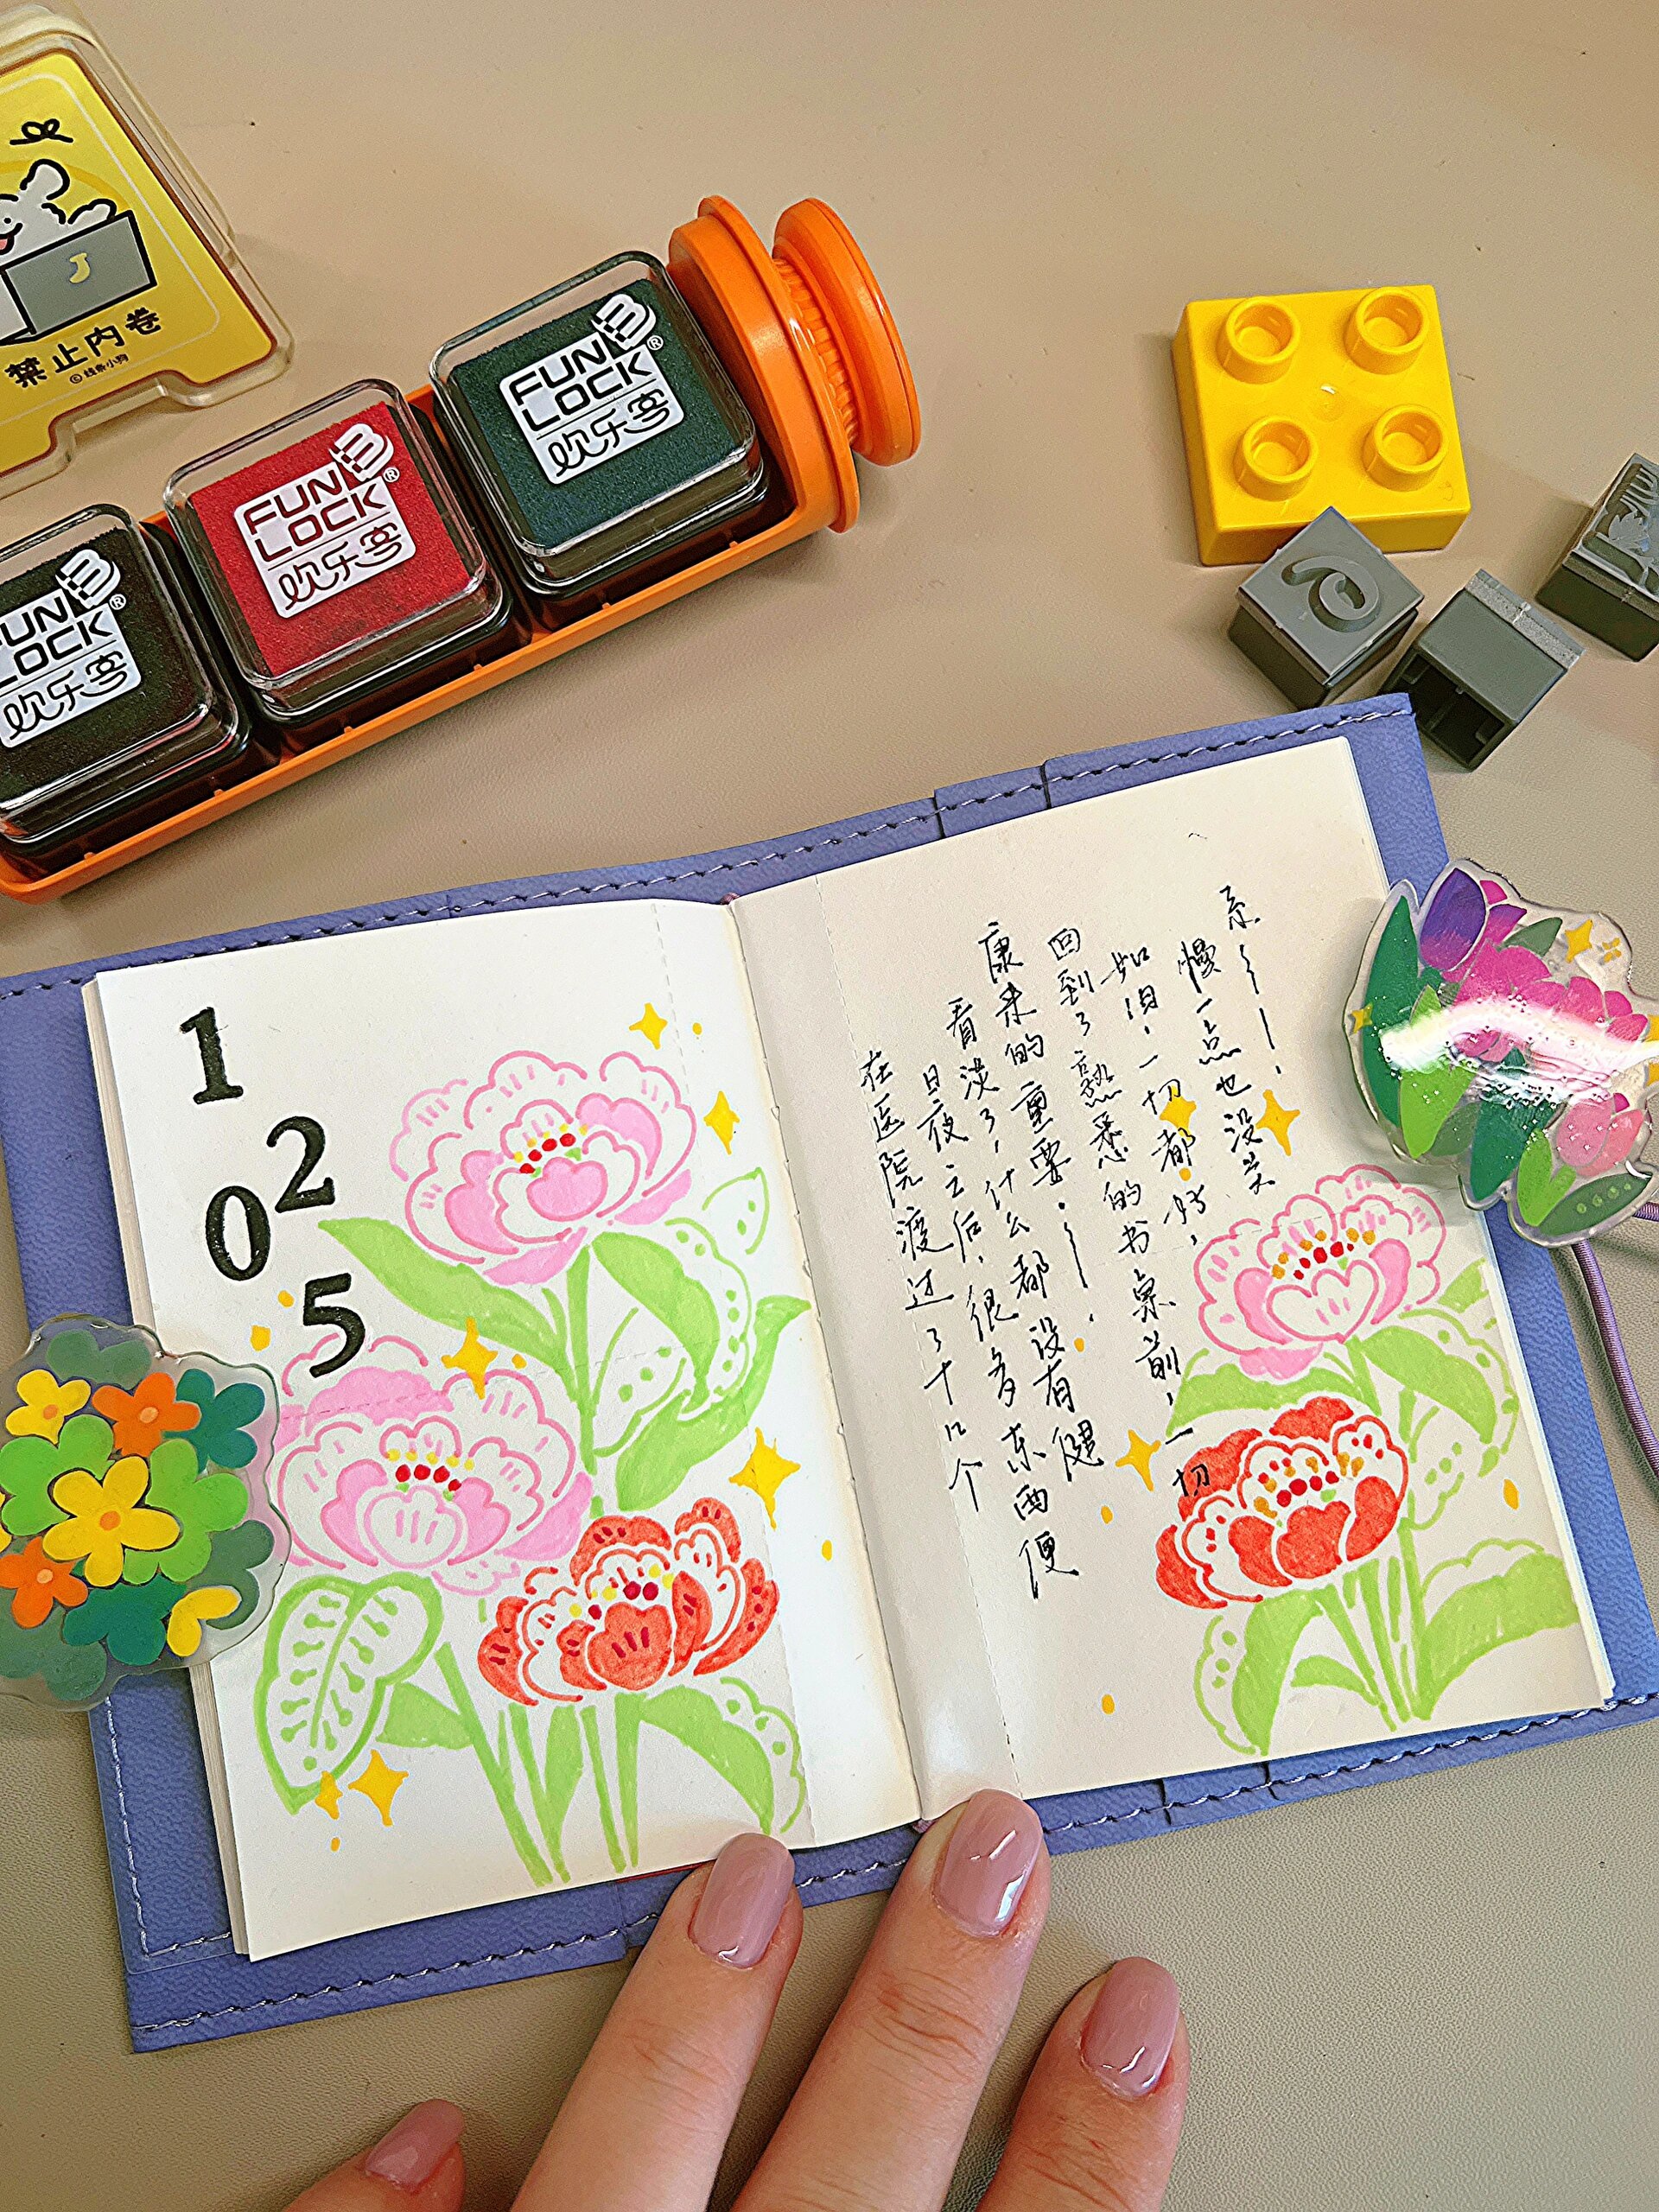 禁止内卷
©线条小狗
FUN
LOCK®
欢乐客
FUN
LOCK®
欢乐客
FUN
LOCK®
欢乐客
1
2
0
5
在医院渡过了十几个
日夜之后，很多东西便
看淡了，什么都没有健
康来的重要。~~!
回到了熟悉的书桌前，一切
如旧，一切都好，
慢一点也没关
系~~!